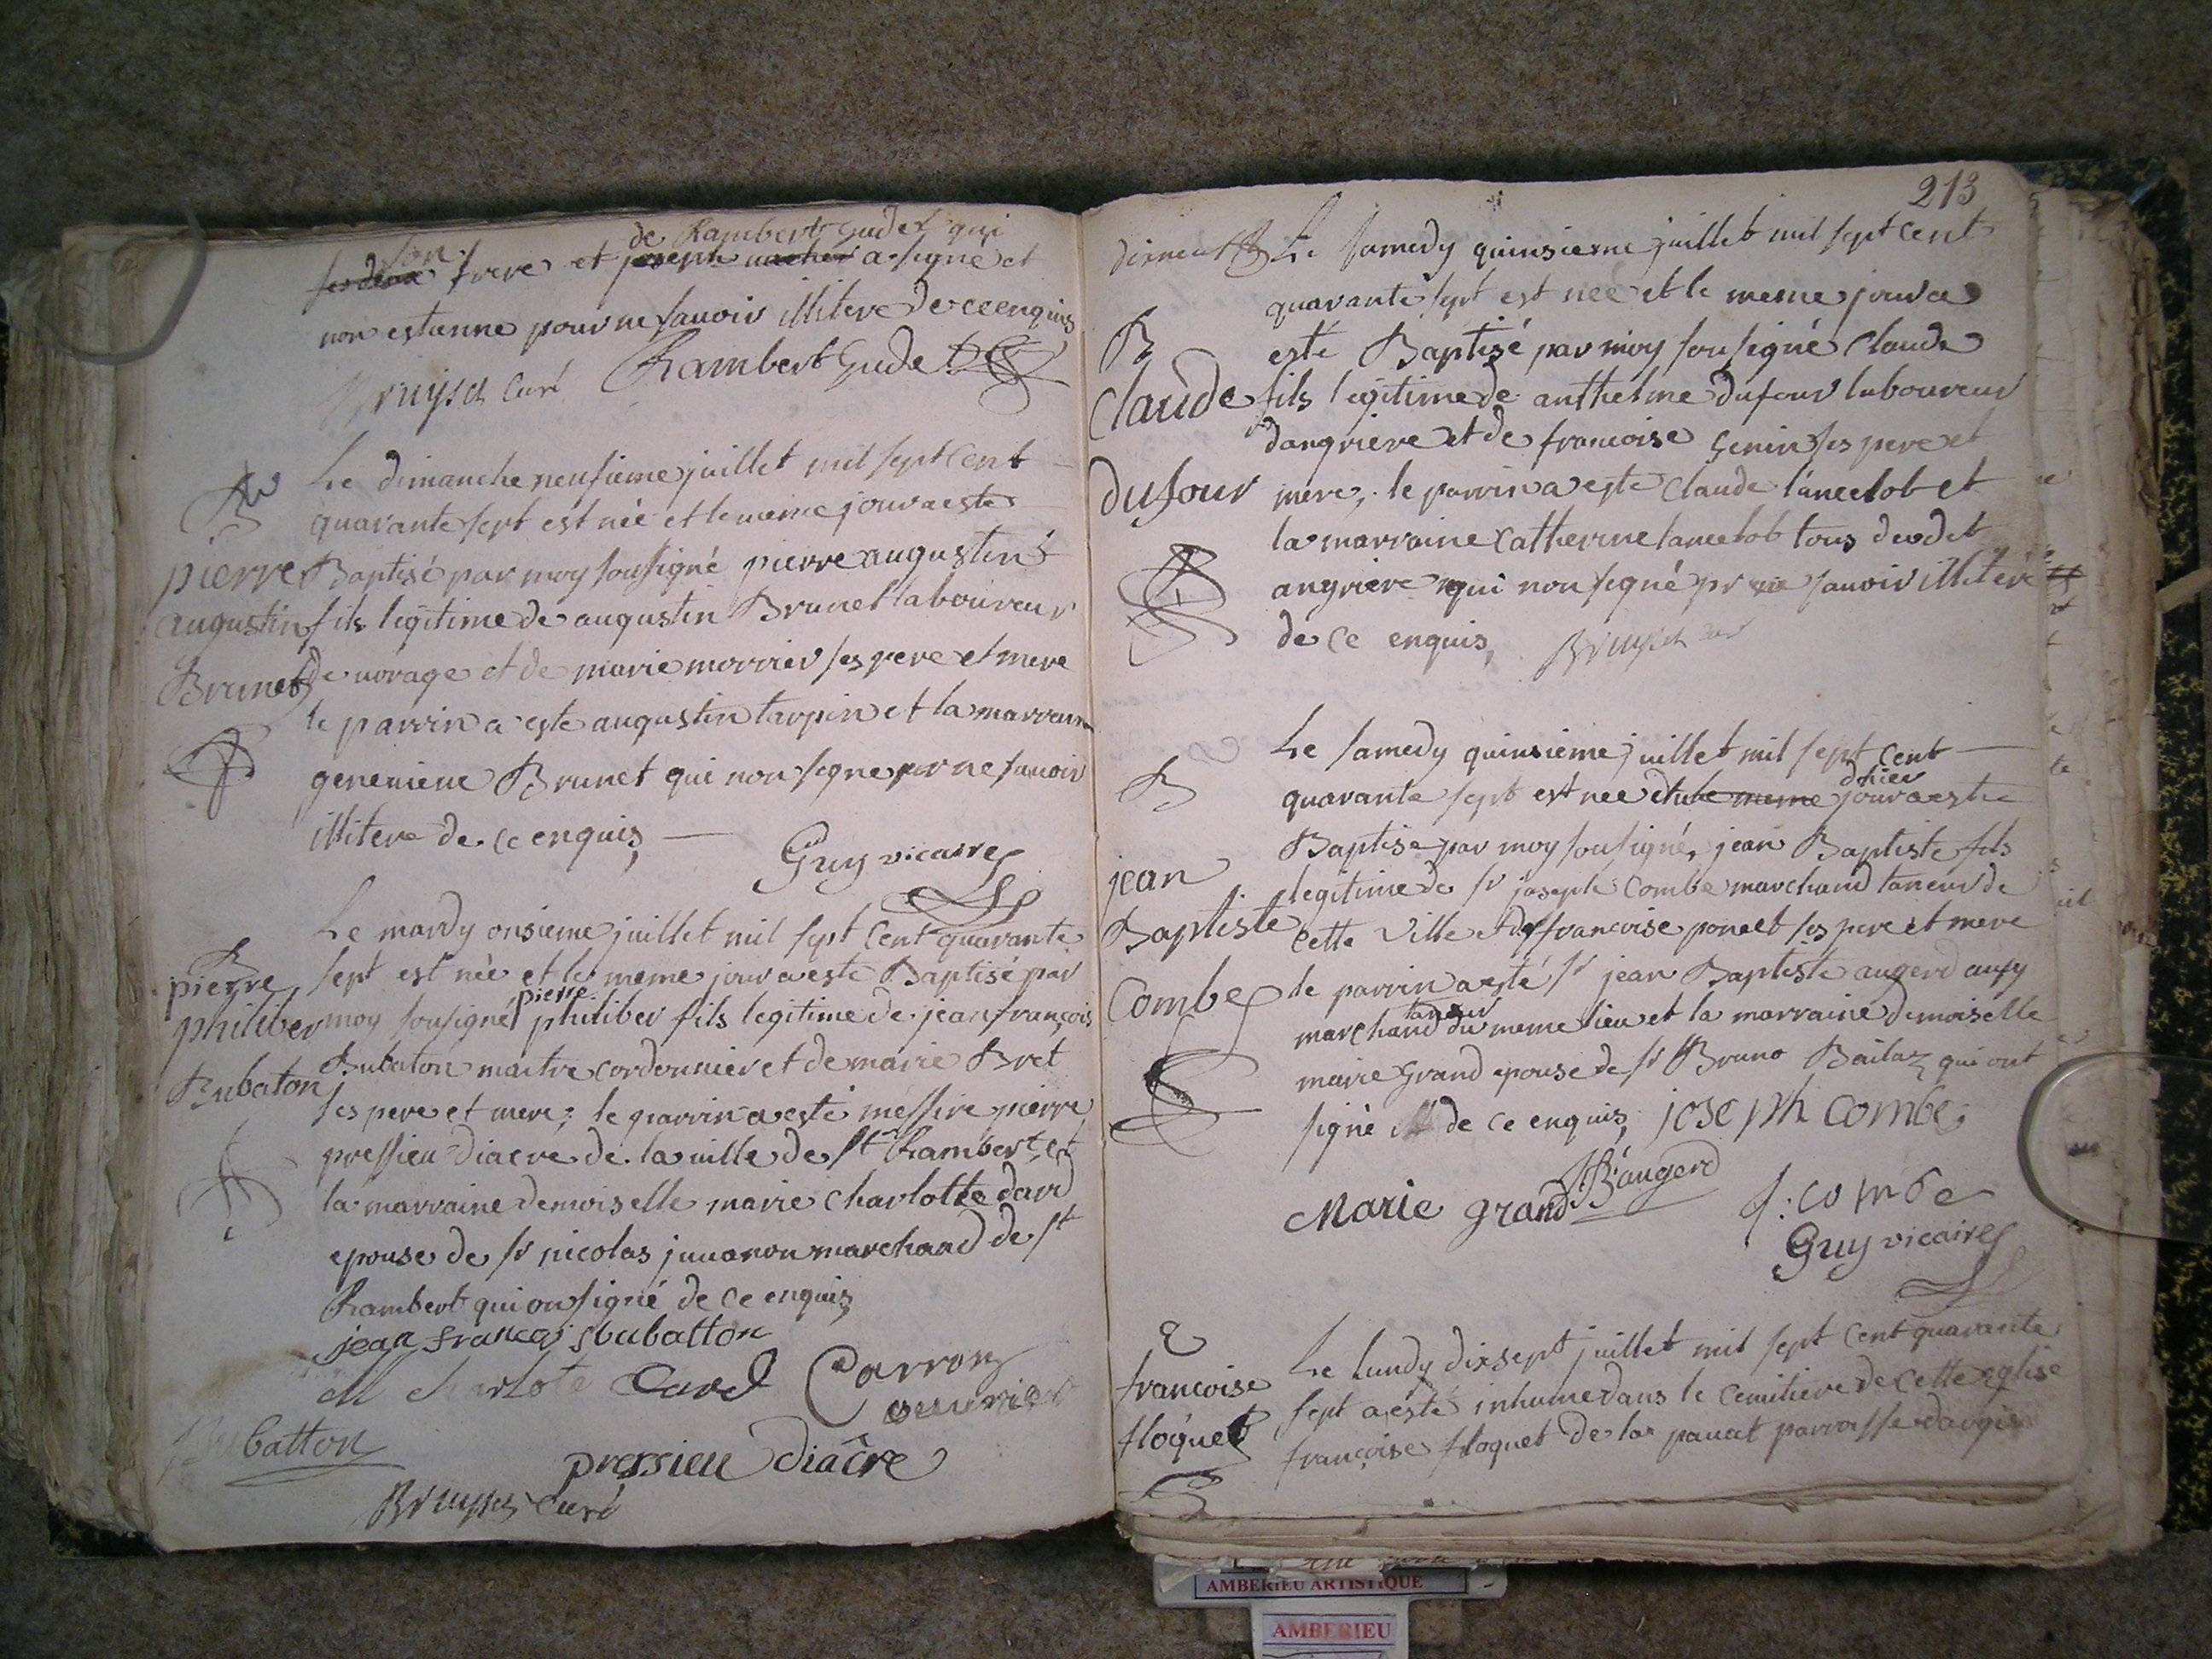 son de Rambert Gudet qui
frere et joseph a signé et
non estienne pour ne savoir illitere de ce enquis
Bruyset Curé Rambert Gudet
B
pierre
augustin
Brunet
Le dimanche neufieme juillet mil sept Cent
quarante sept est née et le meme jour a este
Baptisé par moy sousigné pierre augustin
fils legitime de augustin Brunet laboureur
de vorage et de marie morrier ses pere et mere
le parrin a este augustin tarpin et la marraine
genevieve Brunet qui non signe pr ne savoir
illitere de ce enquis,
Guy vicaire
B
pierre
philiber
Bubaton
Le mardy onsieme juillet mil sept Cent quarante
sept est née et le meme jour a este Baptisé par
moy sousigné pierre philiber fils legitime de jean françois
Bubaton maitre cordonnier et de marie Bret
ses pere et mere; le parrin a esté messire pierre
pressieu diacre de la ville de st Rambert et
la marraine demoiselle marie Charlotte
epouse de sr nicolas juvanon marchand de st
Rambert qui on signé de ce enquis,
jean francoi bubatton
M charlote Carron
Bubatton
pressieu Diacre
Bruyset Curé
213
B
Claude
dufour
Le samedy quinsieme juillet mil sept Cent
quarante sept est née et le meme jour a
esté Baptisé par moy sousigné Claude
fils legitime de anthelme dufour laboureur
dangriere et de francoise Genin ses pere et
mere; le parrin a este Claude lancelot et
la marraine Catherine lancelot tous deudet
angriere qui non signé pr savoir illitere
de ce enquis, Bruyset curé
B
jean
Baptiste
Combe
Le samedy quinsieme juillet mil sept Cent
quarante sept est née et le meme jour a este
Baptise par moy sousigné, jean Baptiste fils
legitime de sr joseph Combe marchand taneur de
Cette Ville et de francoise poncet ses pere et mere
le parrin a esté sr jean Baptiste augerd aussy
marchand taneur du meme lieu et la marraine demoiselle
marie Grand epouse de sr Bruno Bailaz qui ont
signé de ce enquis, joseph Combe
Marie grand JB augerd f: combe
Guy vicaire
E
francoise
floquet
Le lundy dixsept juillet mil sept Cent quarante
sept a esté inhumé dans le Cemitiere de Cette eglise
françoise floquet de la pavat parroisse dargis
AMBERIEU ARTISTIQUE
AMBERIEU